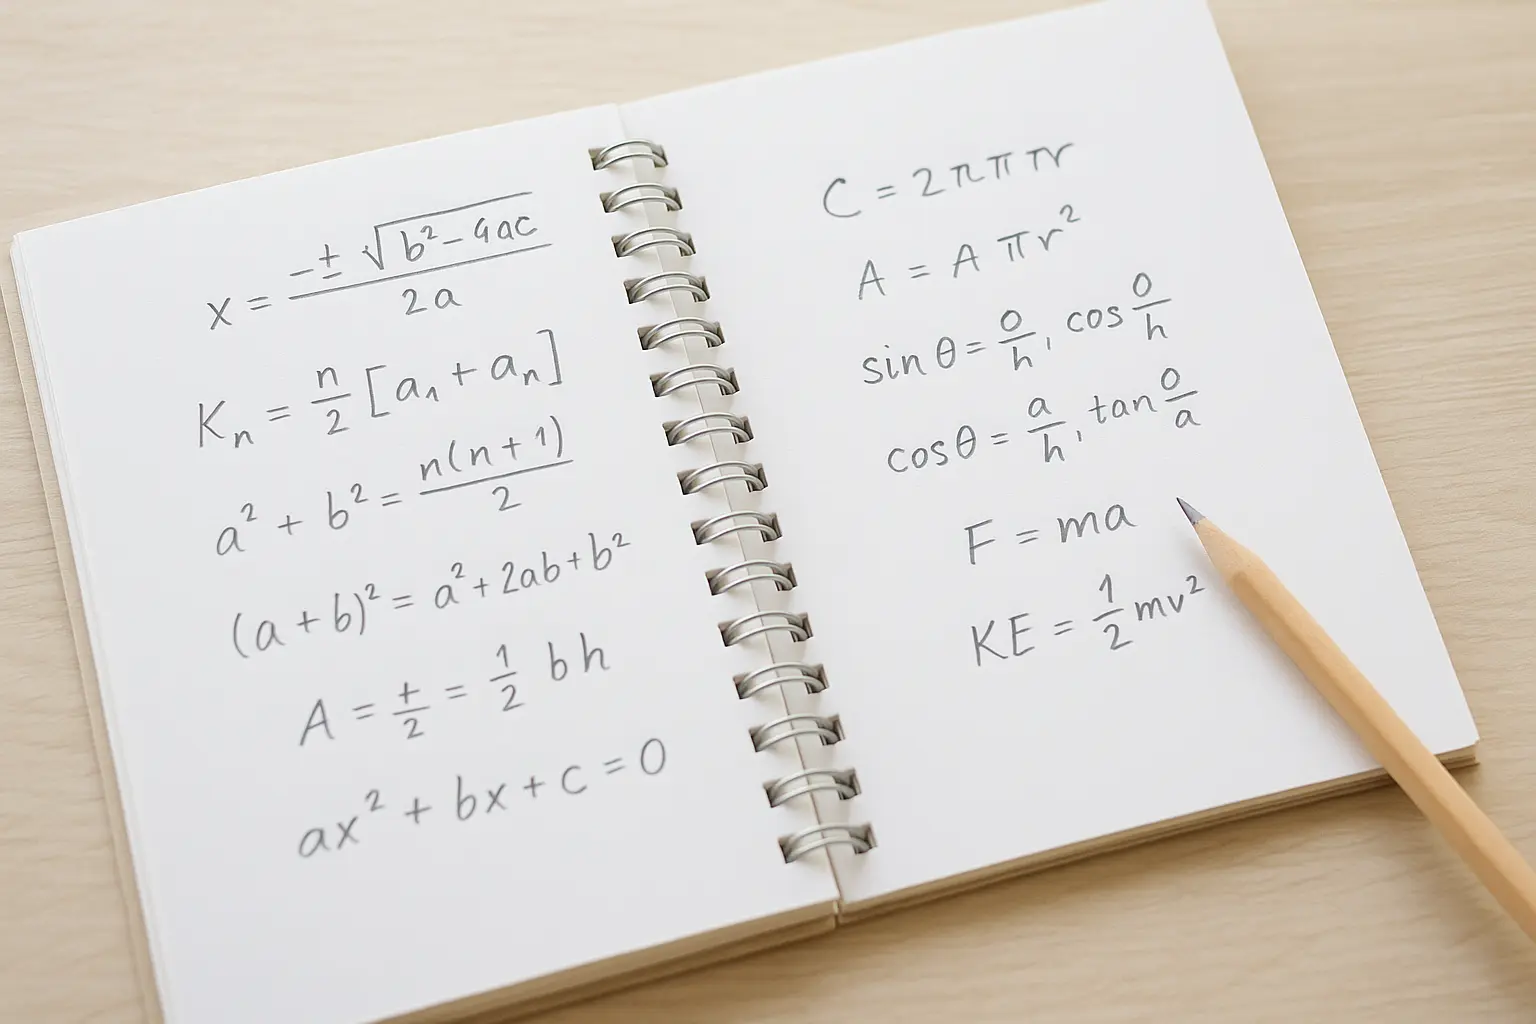 x = -± √(b² - 4ac) / 2a
Kₙ = n/2 [a₁ + aₙ]
a² + b² = n(n+1)/2
(a + b)² = a² + 2ab + b²
A = t/2 = 1/2 bh
ax² + bx + c = 0
C = 2ππ πr
A = A πr²
sin θ = o/h, cos o/h
cos θ = a/h, tan o/a
F = ma
KE = 1/2 mv²